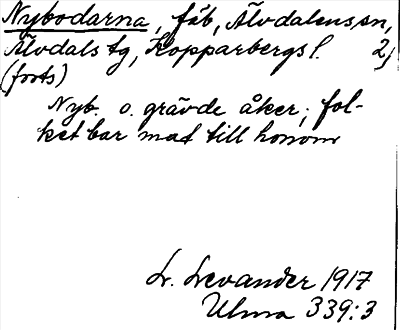 Nybodarna, fäb, Älvdalens sn,
Älvdals tg, Kopparbergs l. 2)
(forts)
Nyb. o. grävde åker; fol-
ket bar mat till honom
L. Levander 1917
Ulma 339:3